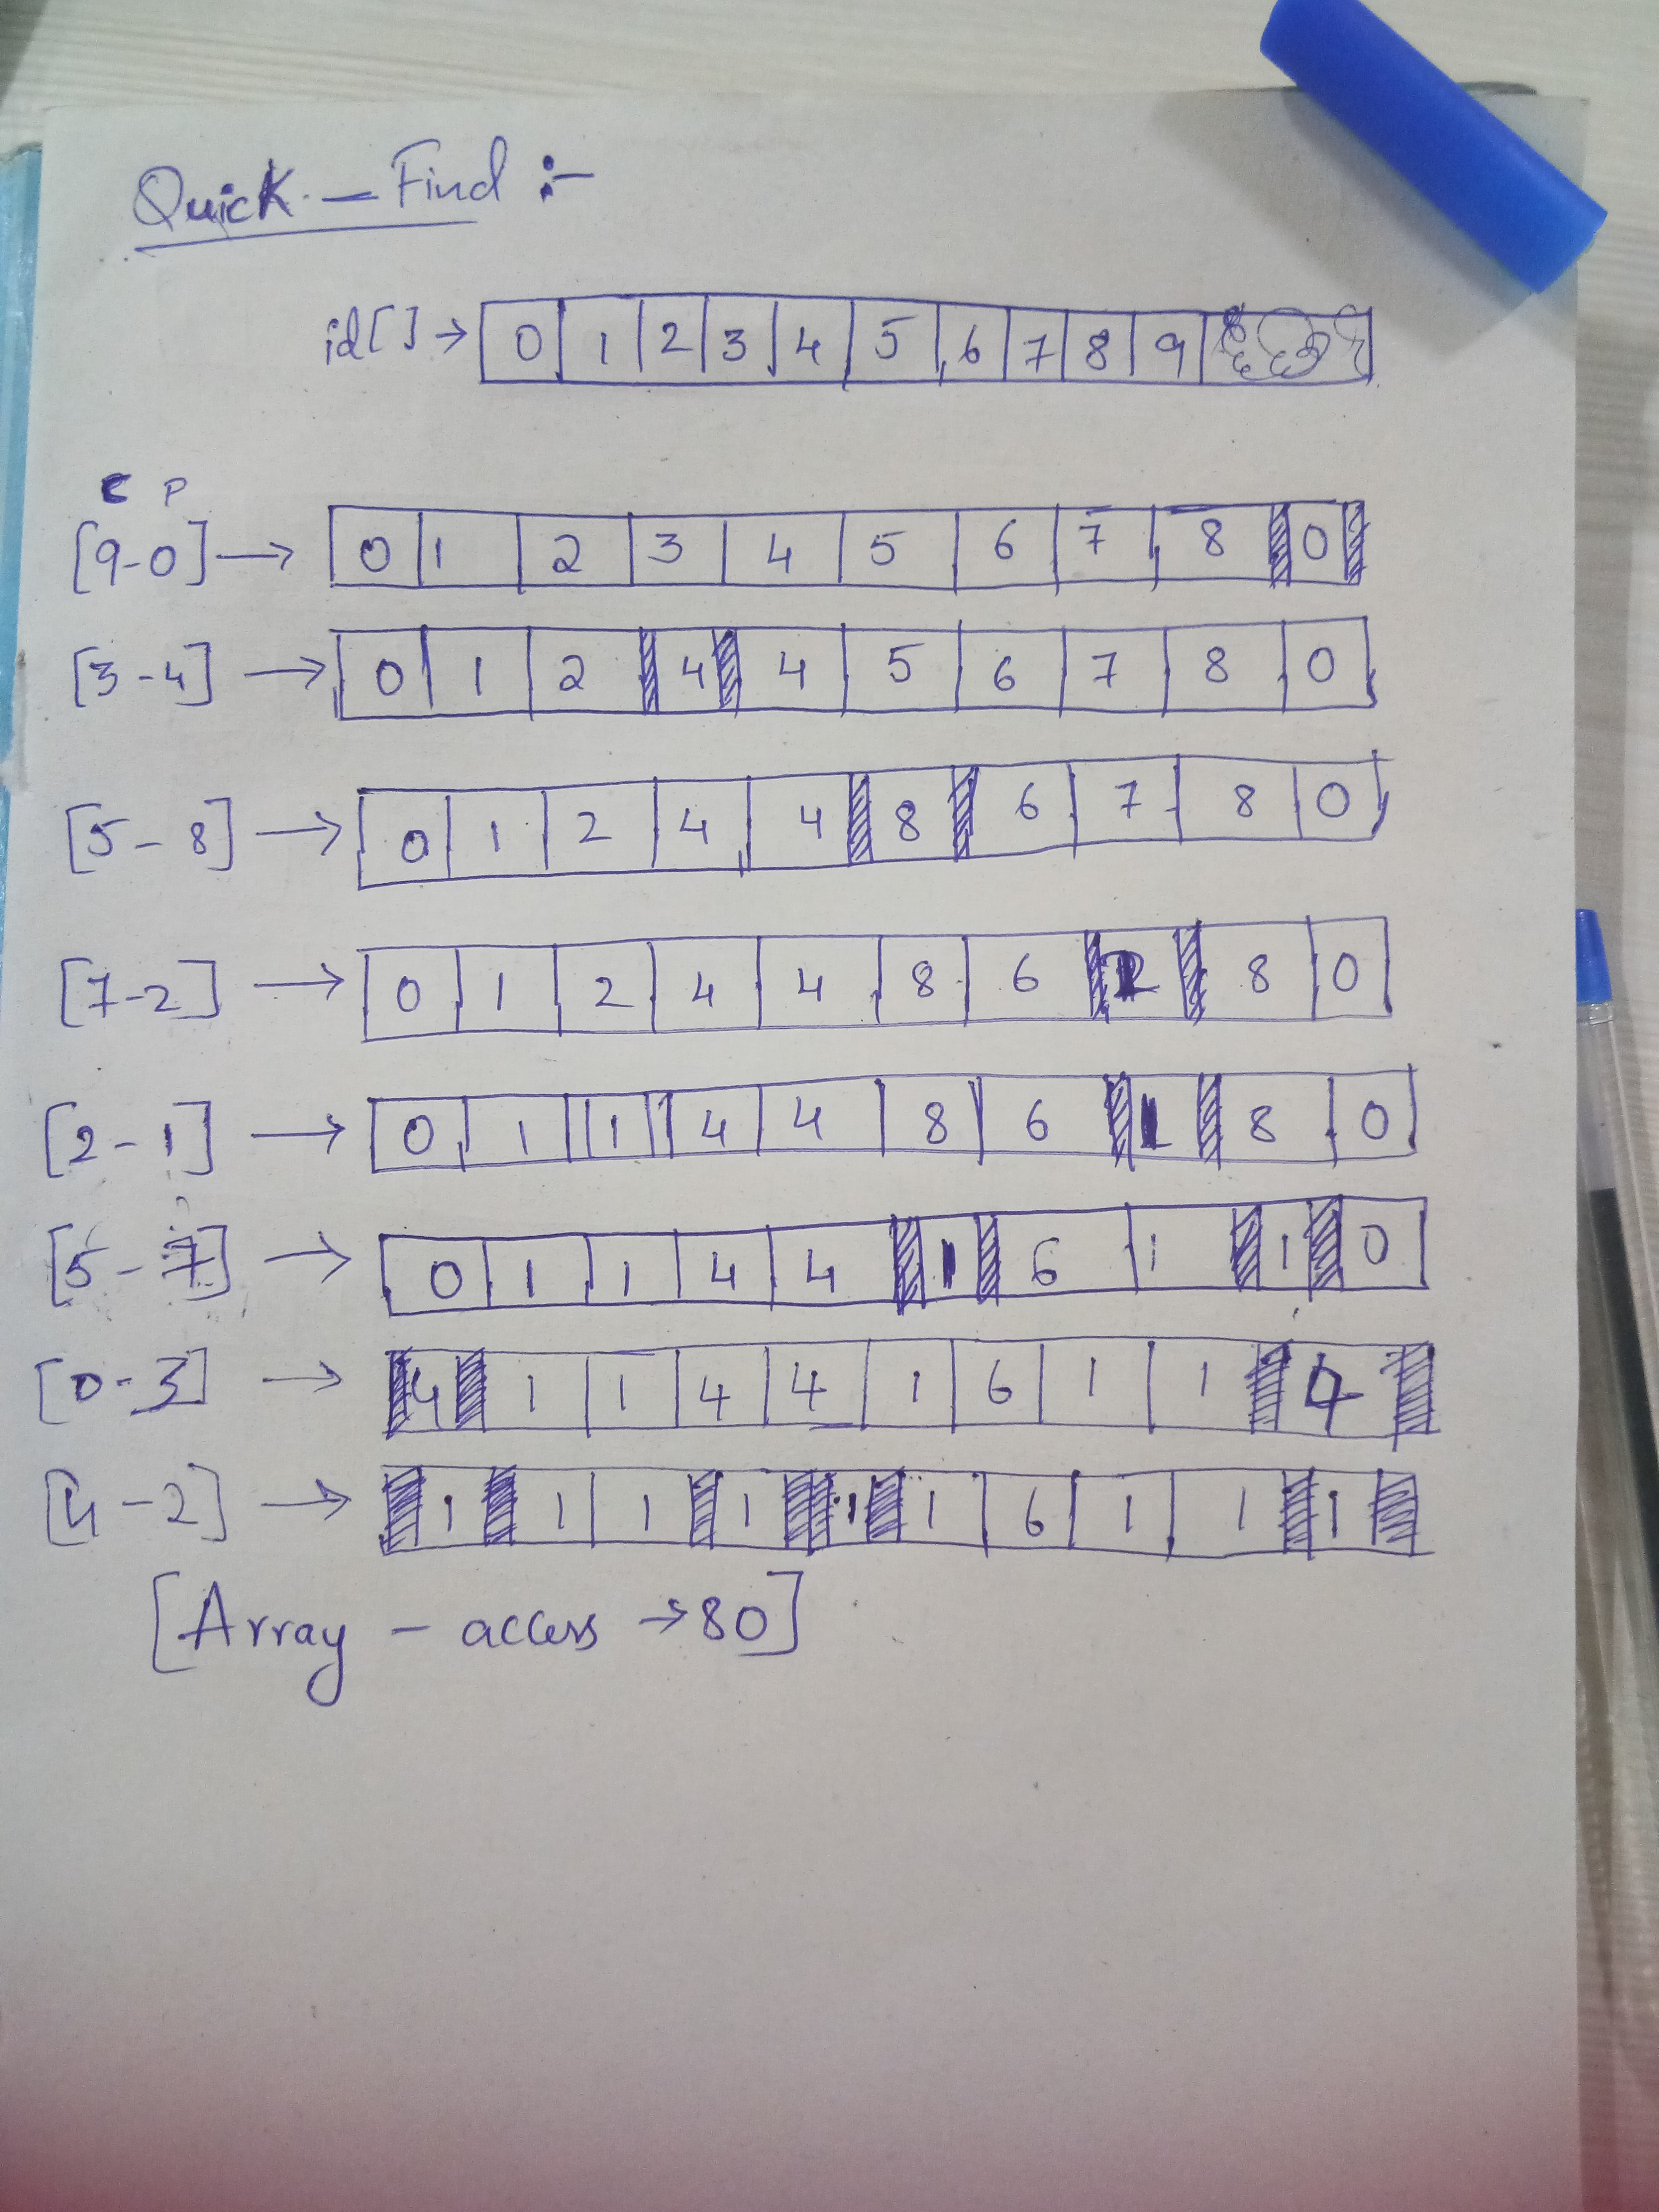 Quick - Find :-
id[] → 0 1 2 3 4 5 6 7 8 9
C P
[9-0] → 0 1 2 3 4 5 6 7 8 0
[3-4] → 0 1 2 4 4 5 6 7 8 0
[5-8] → 0 1 2 4 4 8 6 7 8 0
[7-2] → 0 1 2 4 4 8 6 2 8 0
[2-1] → 0 1 1 4 4 8 6 1 8 0
[5-7] → 0 1 1 4 4 1 6 1 1 0
[0-3] → 4 1 1 4 4 1 6 1 1 4
[4-2] → 1 1 1 1 1 1 6 1 1 1
[Array - access → 80]